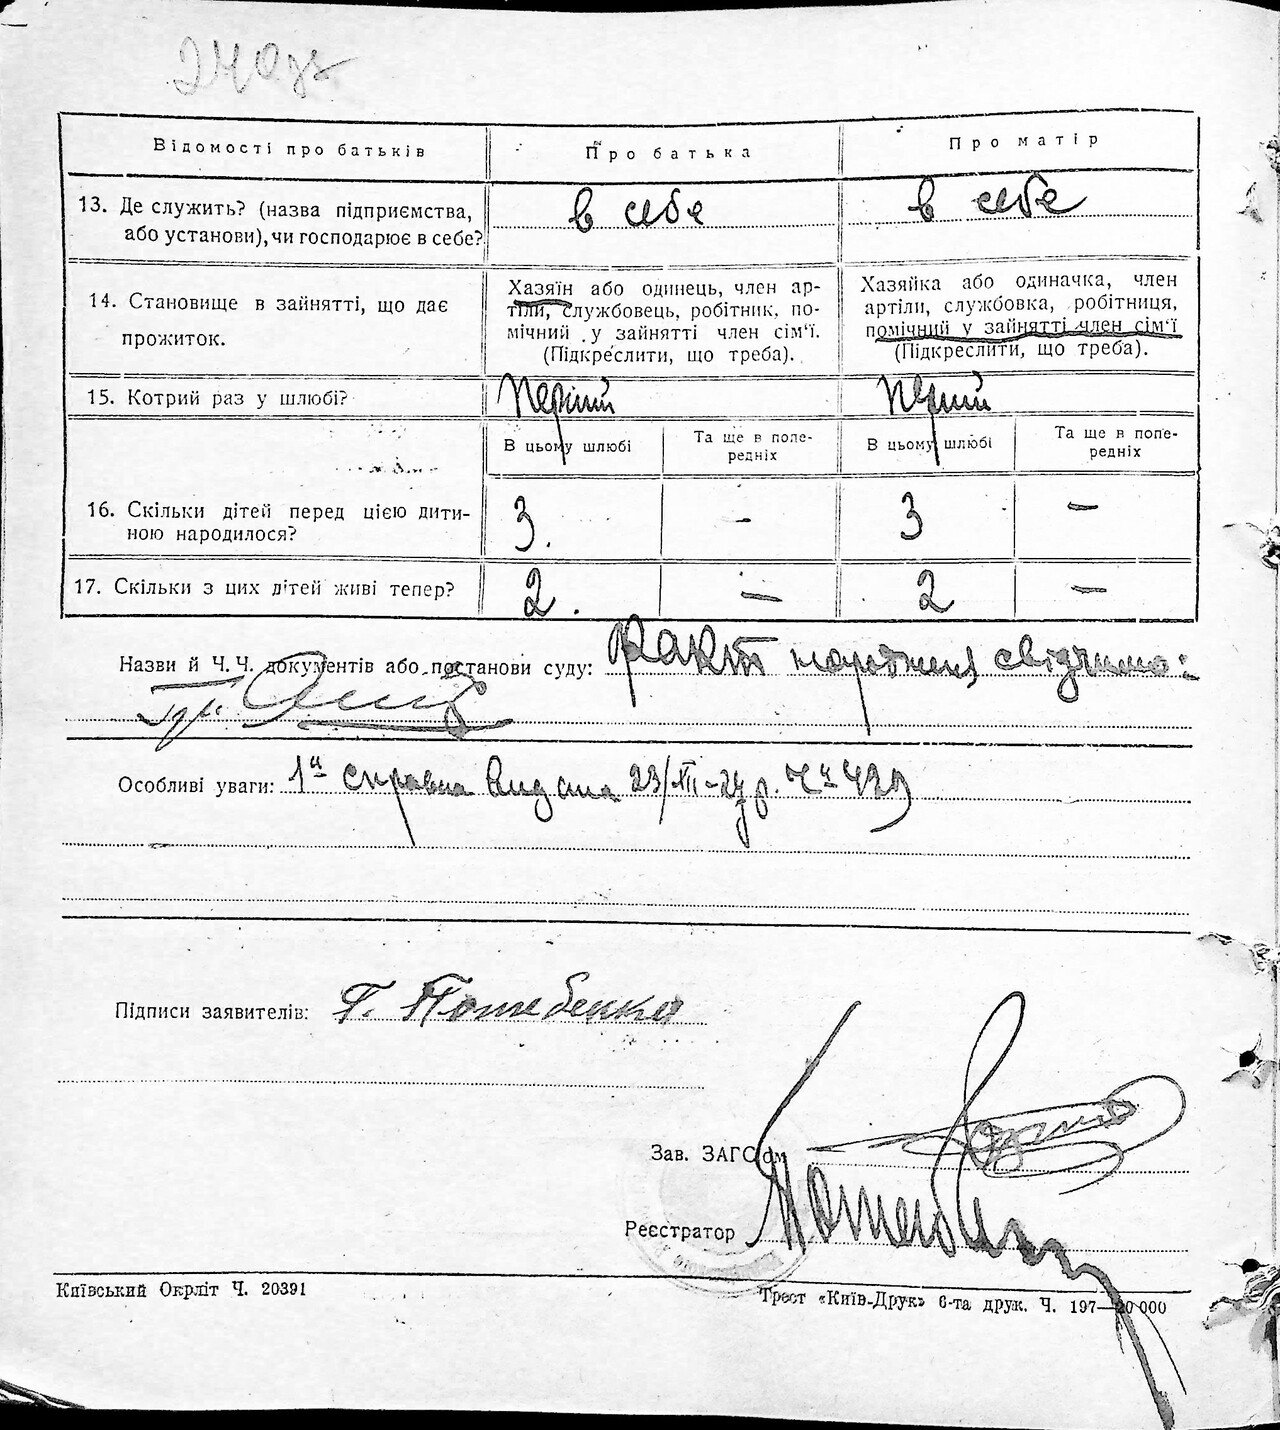 240 зв
Відомості про батьків
Про батька
Про матір
13. Де служить? (назва підприємства,
або установи), чи господарює в себе?
в себе
в себе
14. Становище в зайнятті, що дає
прожиток.
Хазяїн або одинець, член ар-
тіли, службовець, робітник, по-
мічний у зайнятті член сім'ї.
(Підкреслити, що треба).
Хазяйка або одиначка, член
артіли, службовка, робітниця,
помічний у зайнятті член сім'ї
(Підкреслити, що треба).
15. Котрий раз у шлюбі?
перший
перший
В цьому шлюбі
Та ще в попе-
редніх
В цьому шлюбі
Та ще в попе-
редніх
16. Скільки дітей перед цією дити-
ною народилося?
3.
-
3
-
17. Скільки з цих дітей живі тепер?
2.
-
2
-
Назви й Ч.Ч. документів або постанови суду: Факт народження свідчимо:
Особливі уваги: 1а справка видана 23/XII-27 р. Ч
Підписи заявителів: Г. Потебенко
Зав. ЗАГСом
Реєстратор
Київський Окрліт Ч. 20391
Трест «Київ-Друк» 6-та друк. Ч. 197—20 000